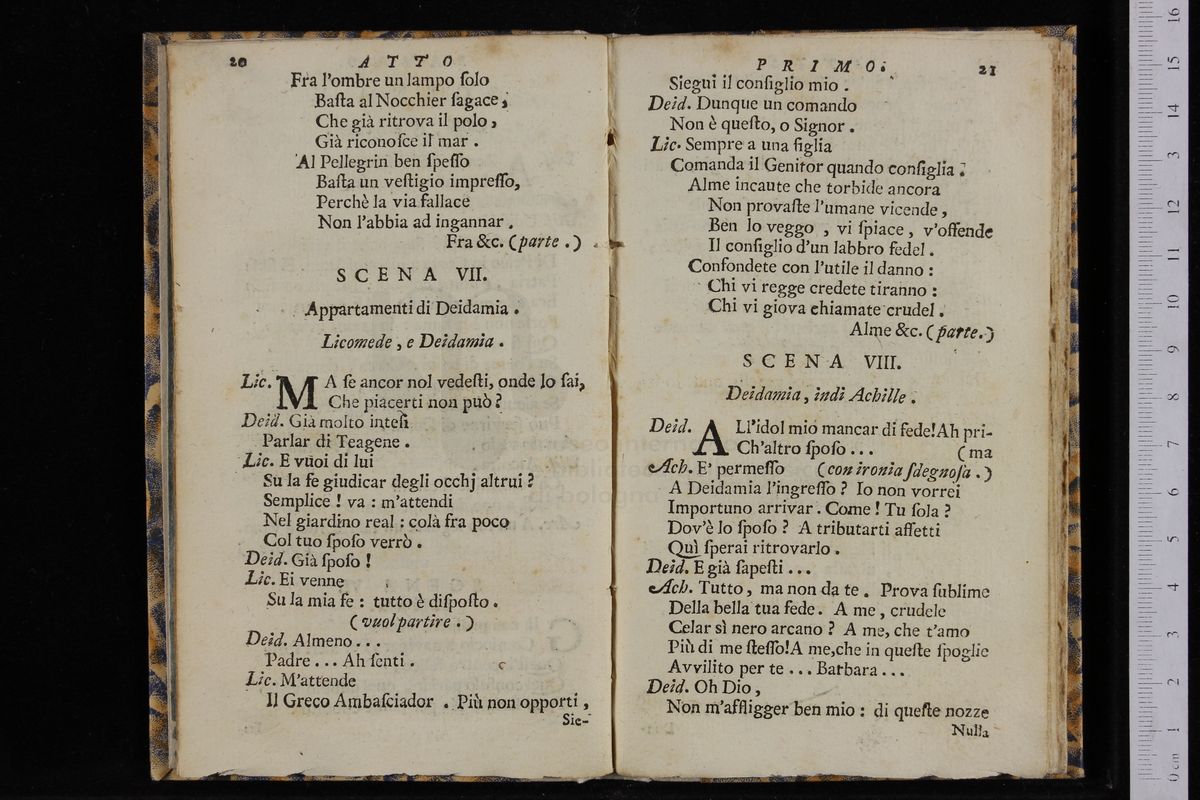 20
A T T O
Fra l'ombre un lampo ſolo
Baſta al Nocchier ſagace,
Che già ritrova il polo,
Già riconoſce il mar.
Al Pellegrin ben ſpeſſo
Baſta un veſtigio impreſſo,
Perchè la via fallace
Non l'abbia ad ingannar.
Fra &c. (parte.)
SCENA VII.
Appartamenti di Deidamia.
Licomede, e Deidamia.
Lic. MA ſe ancor nol vedeſti, onde lo ſai,
Che piacerti non può?
Deid. Già molto inteſi
Parlar di Teagene.
Lic. E vuoi di lui
Su la fe giudicar degli occhj altrui?
Semplice! va: m'attendi
Nel giardino real: colà fra poco
Col tuo ſpoſo verrò.
Deid. Già ſpoſo!
Lic. Ei venne
Su la mia fe: tutto è diſpoſto.
(vuol partire.)
Deid. Almeno...
Padre... Ah ſenti.
Lic. M'attende
Il Greco Ambaſciador. Più non opporti,
Sie-
P R I M O.
21
Siegui il conſiglio mio.
Deid. Dunque un comando
Non è queſto, o Signor.
Lic. Sempre a una figlia
Comanda il Genitor quando conſiglia.
Alme incaute che torbide ancora
Non provaſte l'umane vicende,
Ben lo veggo, vi ſpiace, v'offende
Il conſiglio d'un labbro fedel.
Confondete con l'utile il danno:
Chi vi regge credete tiranno:
Chi vi giova chiamate crudel.
Alme &c. (parte.)
SCENA VIII.
Deidamia, indi Achille.
Deid. ALl'idol mio mancar di fede! Ah pri-
Ch'altro ſpoſo... (ma
Ach. E' permeſſo (con ironia ſdegnoſa.)
A Deidamia l'ingreſſo? Io non vorrei
Importuno arrivar. Come! Tu ſola?
Dov'è lo ſpoſo? A tributarti affetti
Quì ſperai ritrovarlo.
Deid. E già ſapeſti...
Ach. Tutto, ma non da te. Prova ſublime
Della bella tua fede. A me, crudele
Celar sì nero arcano? A me, che t'amo
Più di me ſteſſo! A me, che in queſte ſpoglie
Avvilito per te... Barbara...
Deid. Oh Dio,
Non m'affligger ben mio: di queſte nozze
Nulla